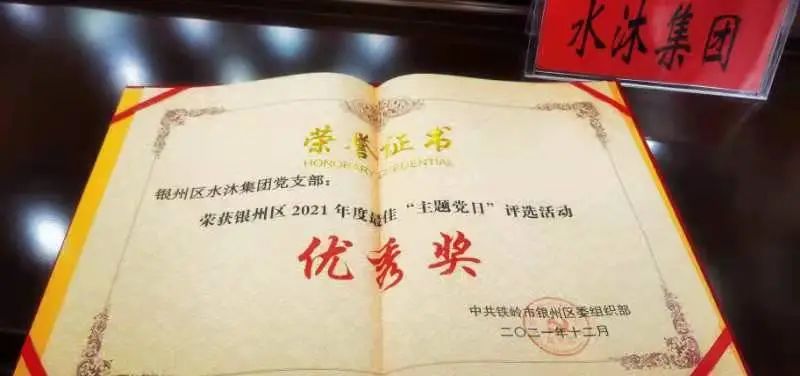 水沐集团
荣誉证书
HONORARY CREDENTIAL
银州区水沐集团党支部：
荣获银州区 2021 年度最佳“主题党日”评选活动
优秀奖
中共铁岭市银州区委组织部
二〇二一年十二月